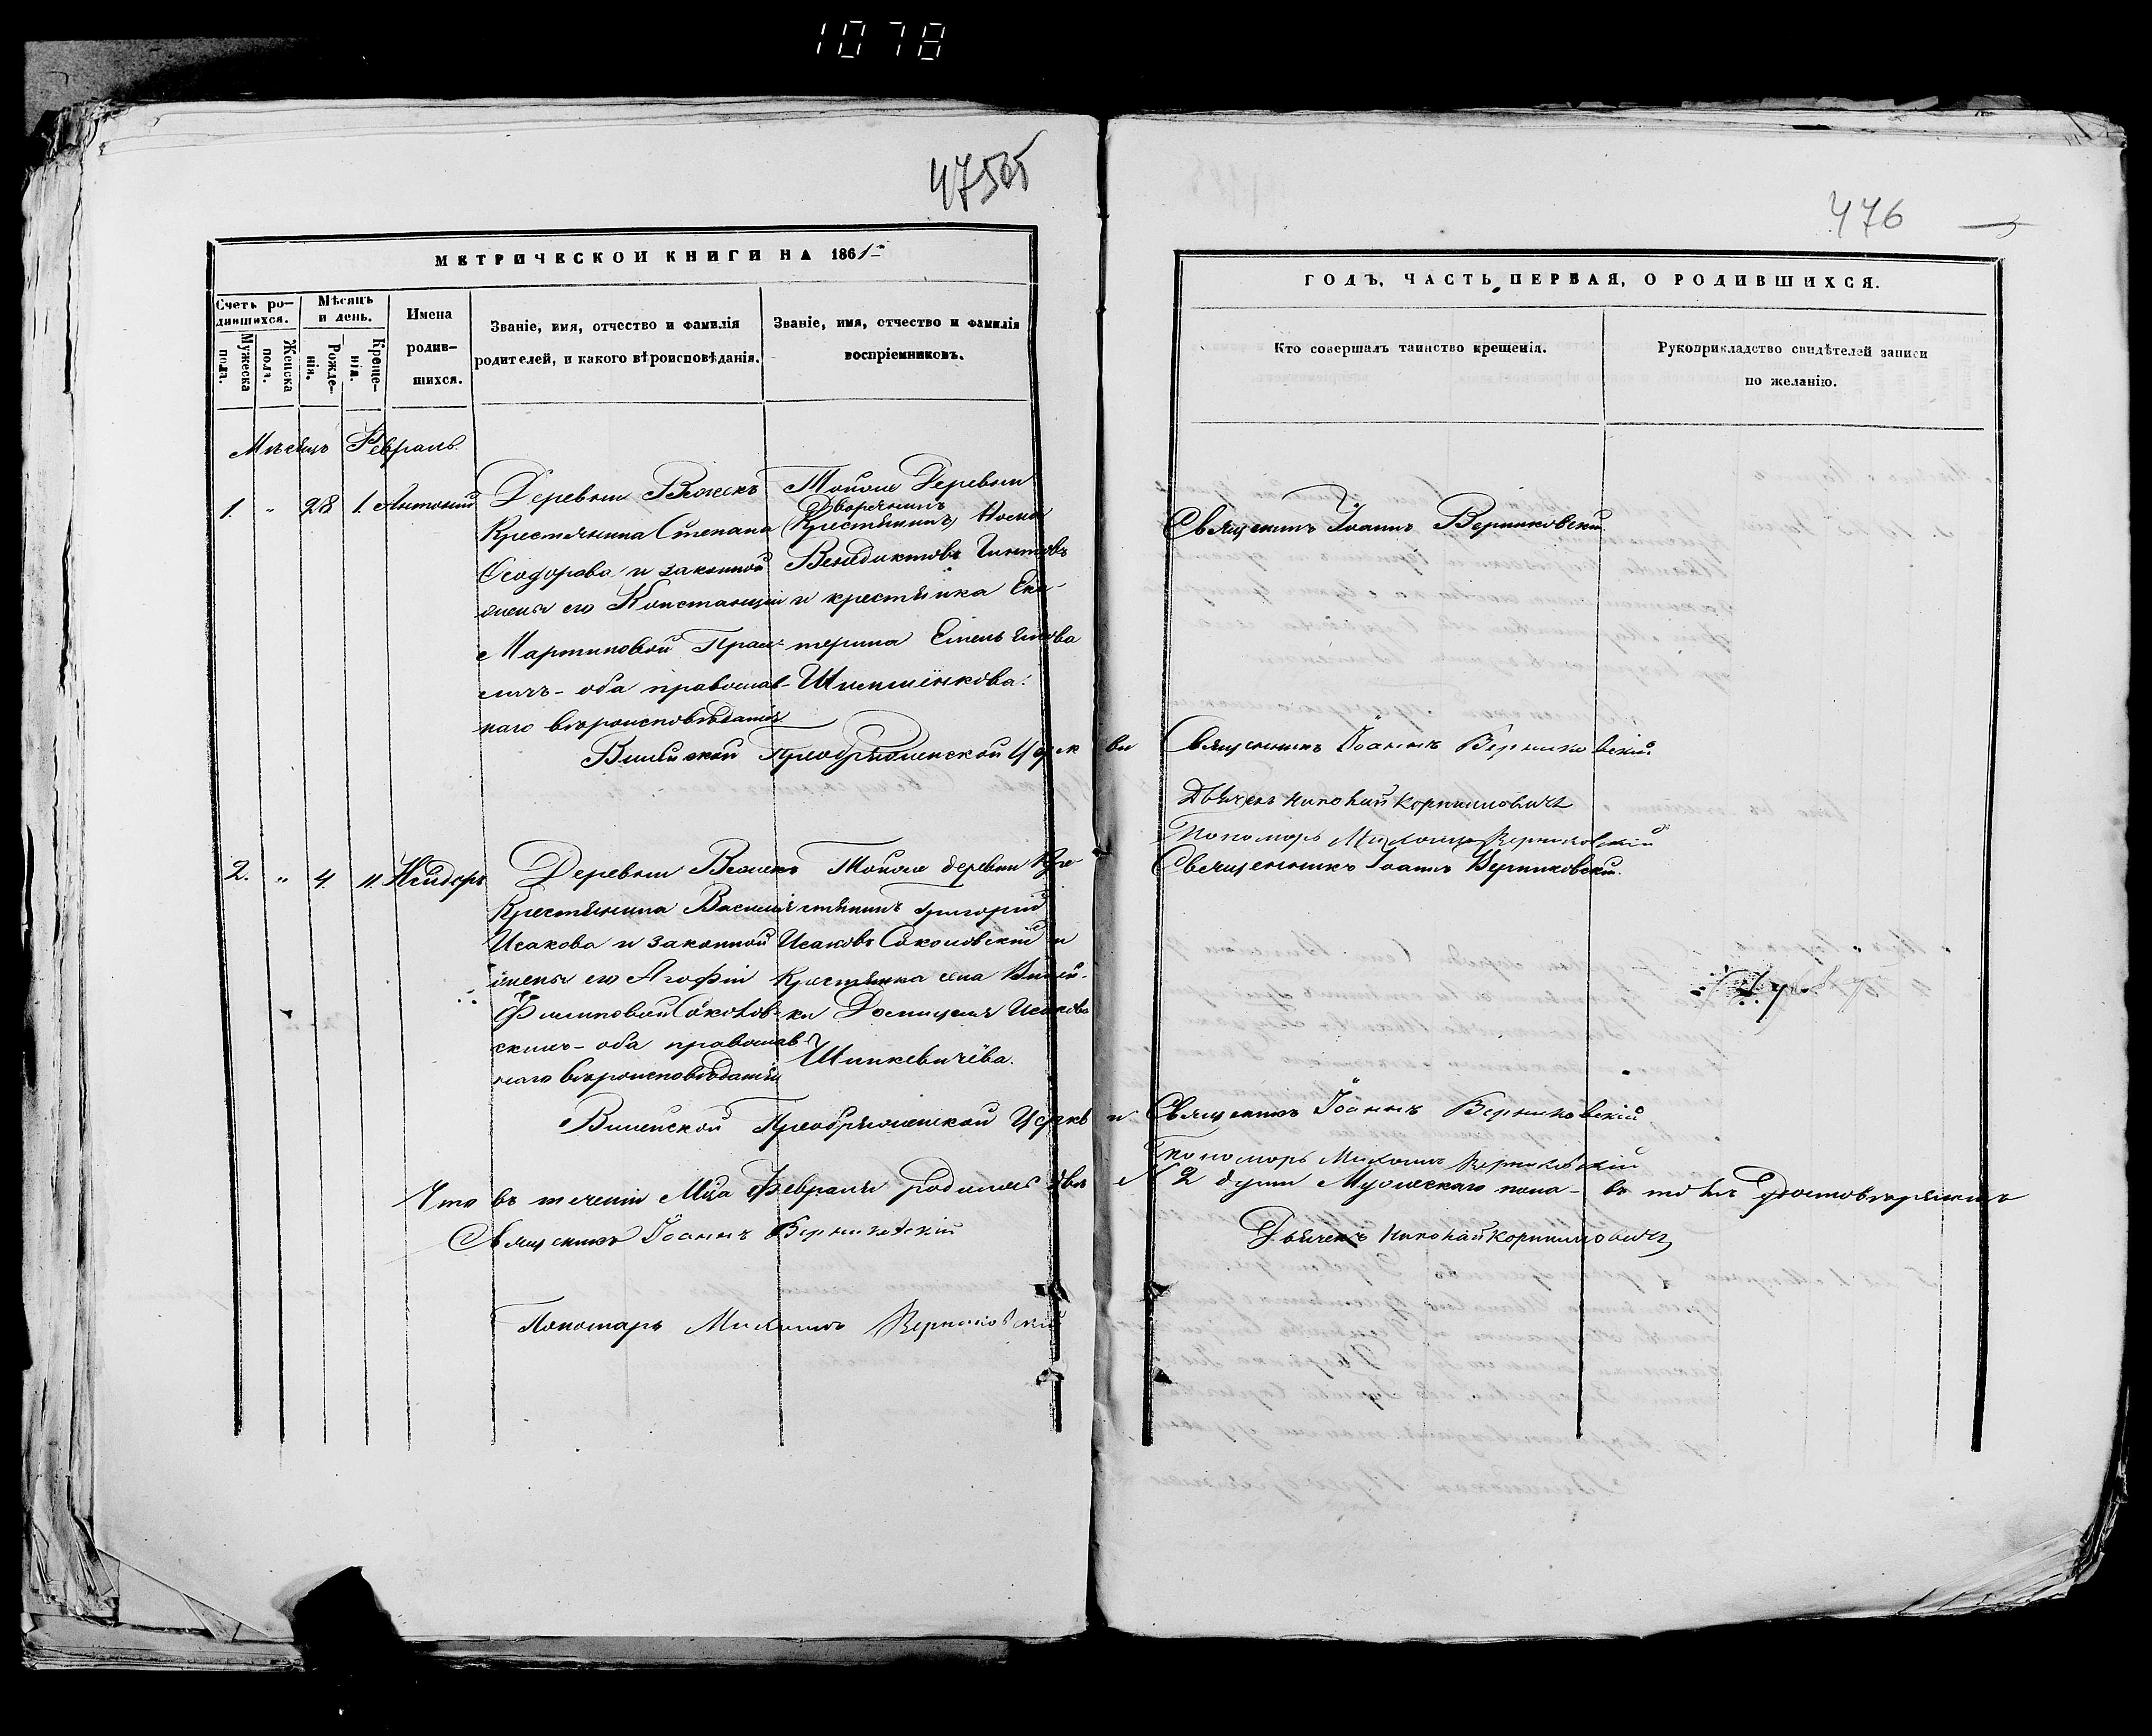 1078
475
476
МЕТРИЧЕСКОЙ КНИГИ НА 1861
ГОДЪ, ЧАСТЬ ПЕРВАЯ, О РОДИВШИХСЯ.
Счетъ ро-
дившихся.
Мужеска
пола.
Женска
пола.
Мѣсяцъ
и день.
Рожде-
нія.
Креще-
нія.
Имена
родив-
шихся.
Званіе, имя, отчество и фамилія
родителей, и какого вѣроисповѣданія.
Званіе, имя, отчество и фамилія
воспріемниковъ.
Кто совершалъ таинство крещенія.
Рукоприкладство свидѣтелей записи
по желанію.
Мѣсяцъ Февраль.
1. " 28 1. Антоній
Деревни
Крестьянина Степана
Ѳеодорова и законной
жены его Констанціи
Мартиновой
оба православ-
наго вѣроисповѣданія
Тойже Деревни
Дворянинъ
(Крестьянинъ)
Венедиктовъ
и крестьянка Ека-
терина
Священникъ Іоаннъ Верниковскій.
Преображенской Церкви Священникъ Іоаннъ Верниковскій.
Дьячекъ Николай Корниловичъ
Пономарь Михаилъ Верниковскій
2. " 4. 11. Исидоръ
Деревни
Крестьянина Василія
Исакова и законной
жены его Агафіи
Филиповой Соколов-
скихъ - оба православ-
наго вѣроисповѣданія
Тойже деревни Кре-
стьянинъ Григорій
Исаковъ Соколовскій и
Крестьянка села
Исакова
Шинкевичёва.
Священникъ Іоаннъ Верниковскій.
Преображенской Церкви Священникъ Іоаннъ Верниковскій
Пономарь Михаилъ Верниковскій
Что въ теченіи Мца Февраля родилось двѣ № 2 души Мужескаго пола - въ томъ удостовѣряемъ
Священникъ Іоаннъ Верниковскій
Дьячекъ Николай Корниловичъ
Пономарь Михаилъ Верниковскій